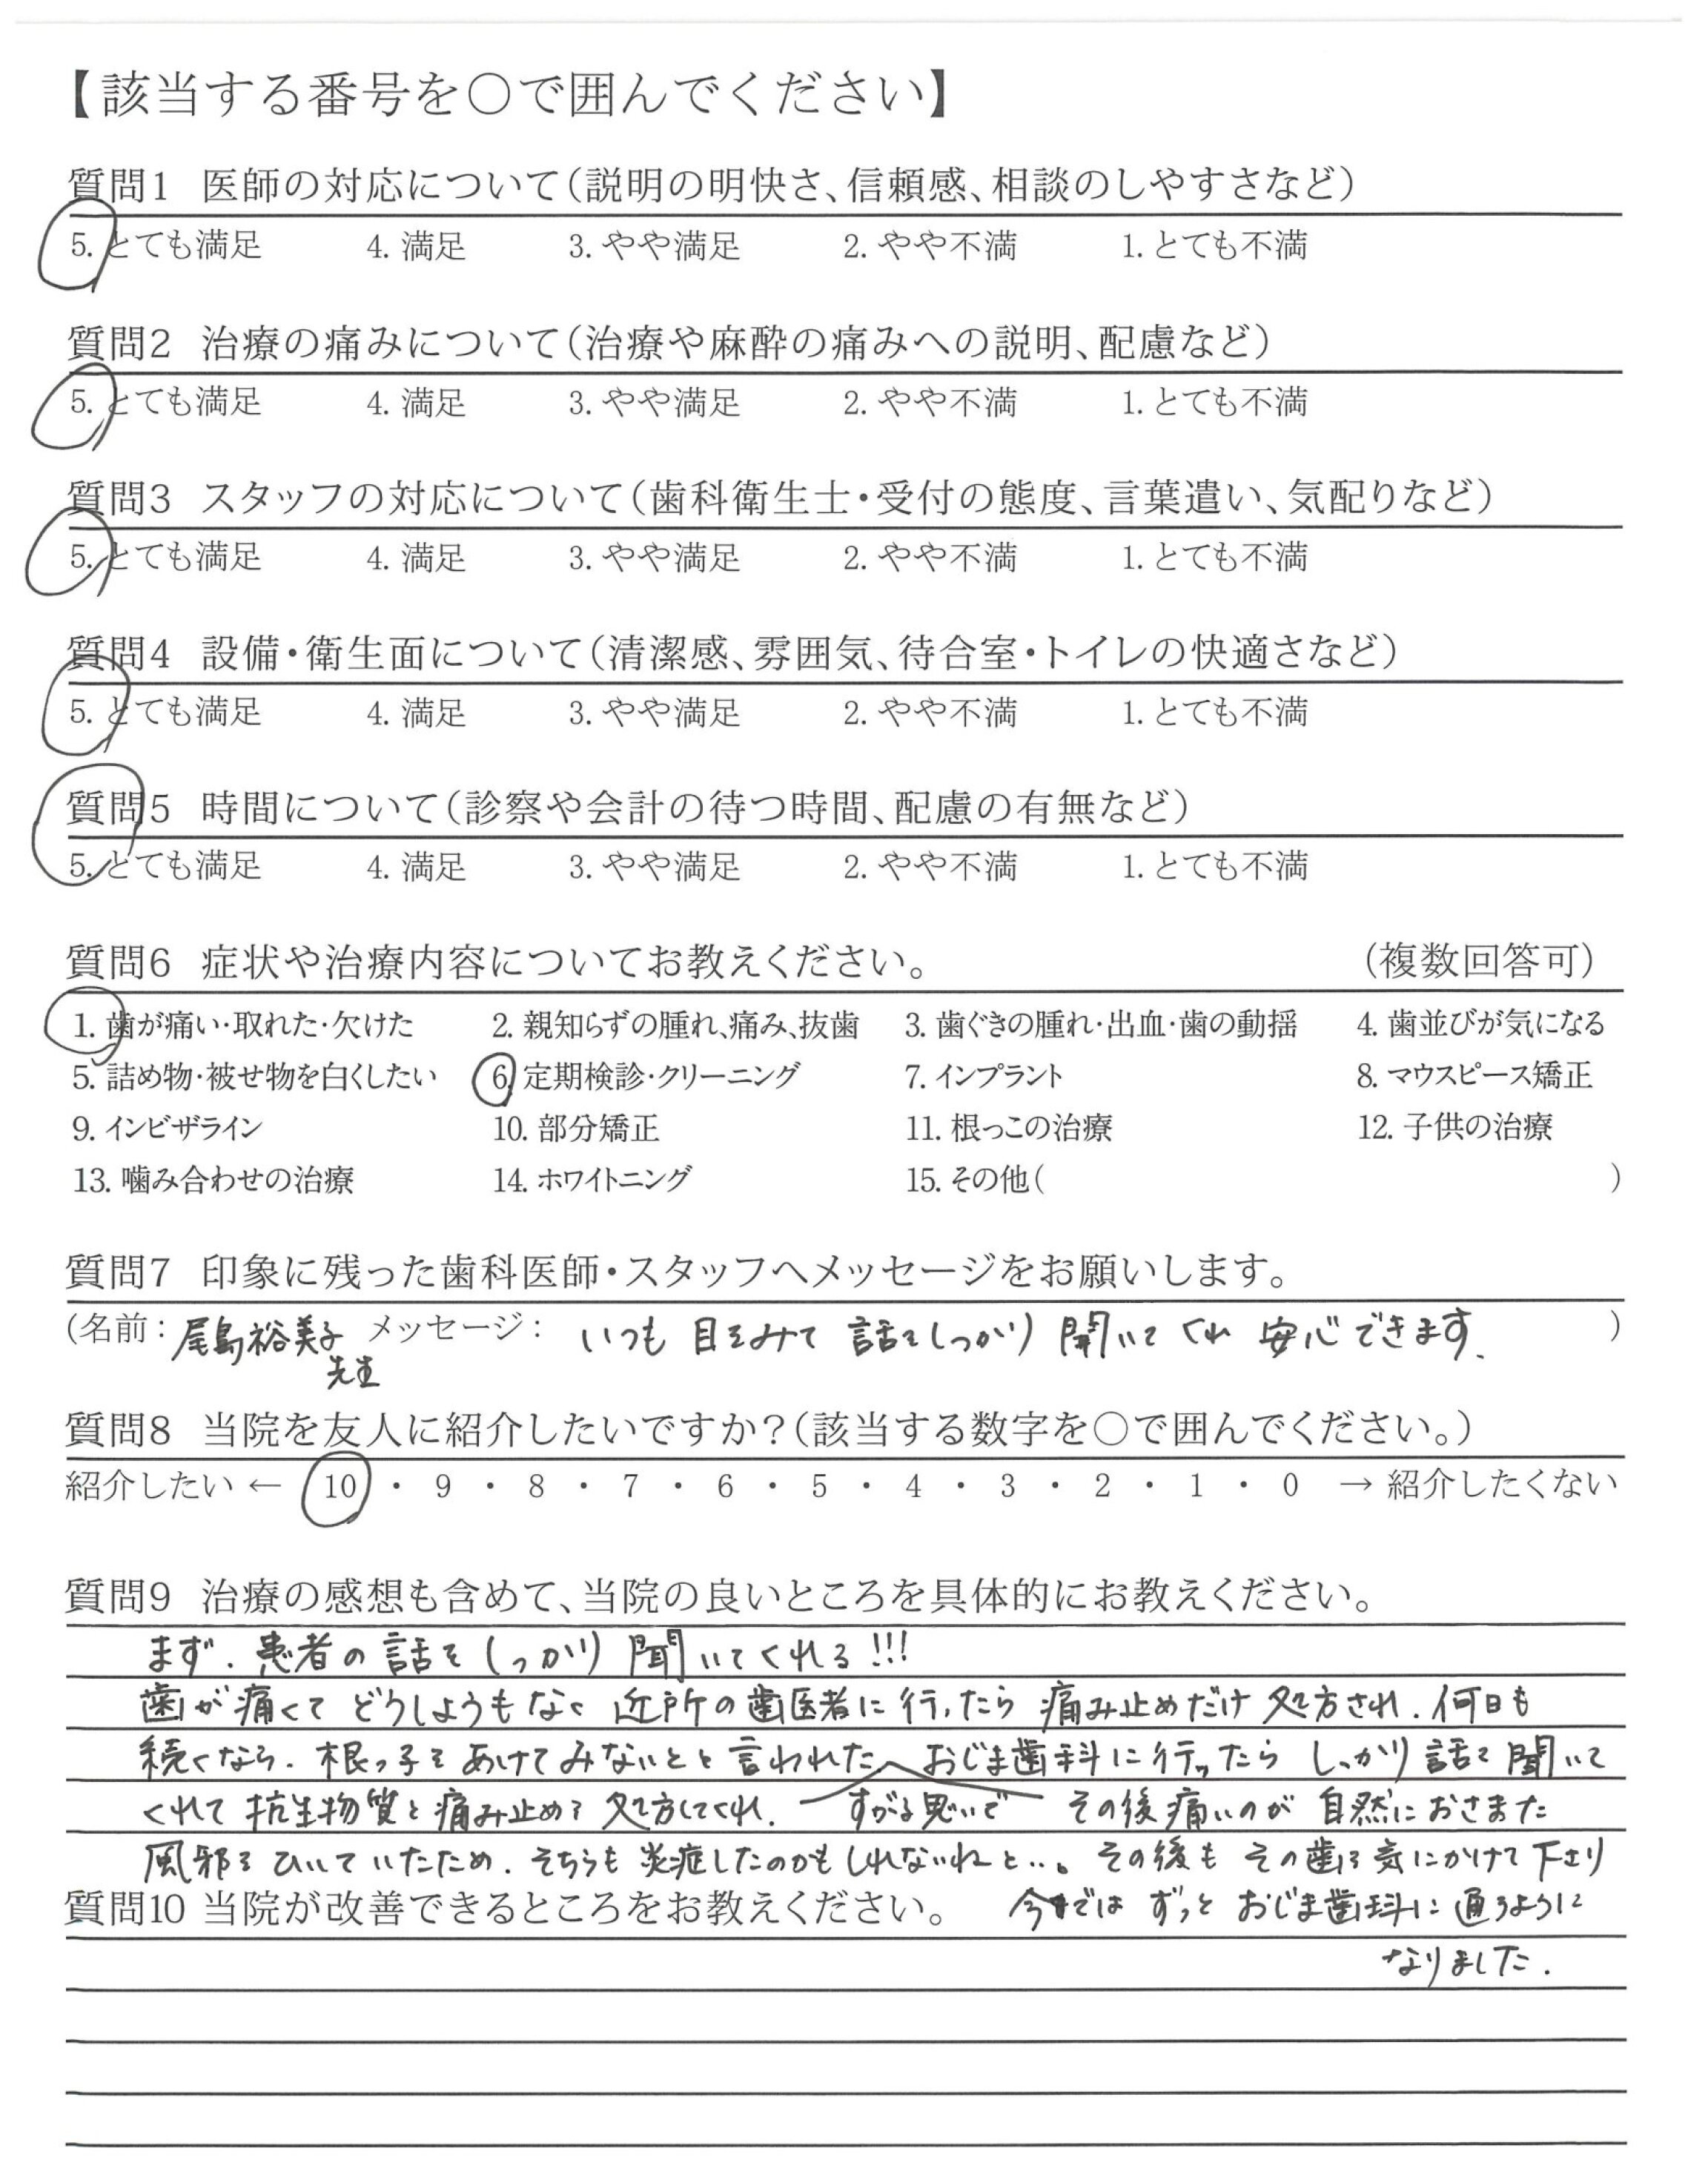 【該当する番号を○で囲んでください】
質問1 医師の対応について(説明の明快さ、信頼感、相談のしやすさなど)
5. とても満足 4. 満足 3. やや満足 2. やや不満 1. とても不満
質問2 治療の痛みについて(治療や麻酔の痛みへの説明、配慮など)
5. とても満足 4. 満足 3. やや満足 2. やや不満 1. とても不満
質問3 スタッフの対応について(歯科衛生士・受付の態度、言葉遣い、気配りなど)
5. とても満足 4. 満足 3. やや満足 2. やや不満 1. とても不満
質問4 設備・衛生面について(清潔感、雰囲気、待合室・トイレの快適さなど)
5. とても満足 4. 満足 3. やや満足 2. やや不満 1. とても不満
質問5 時間について(診察や会計の待つ時間、配慮の有無など)
5. とても満足 4. 満足 3. やや満足 2. やや不満 1. とても不満
質問6 症状や治療内容についてお教えください。 (複数回答可)
1. 歯が痛い・取れた・欠けた 2. 親知らずの腫れ、痛み、抜歯 3. 歯ぐきの腫れ・出血・歯の動揺 4. 歯並びが気になる
5. 詰め物・被せ物を白くしたい 6. 定期検診・クリーニング 7. インプラント 8. マウスピース矯正
9. インビザライン 10. 部分矯正 11. 根っこの治療 12. 子供の治療
13. 噛み合わせの治療 14. ホワイトニング 15. その他( )
質問7 印象に残った歯科医師・スタッフへメッセージをお願いします。
(名前: 尾島裕美子 メッセージ: いつも 目をみて 話をしっかり 聞いてくれ 安心できます. )
先生
質問8 当院を友人に紹介したいですか?(該当する数字を○で囲んでください。)
紹介したい ← 10 ・ 9 ・ 8 ・ 7 ・ 6 ・ 5 ・ 4 ・ 3 ・ 2 ・ 1 ・ 0 → 紹介したくない
質問9 治療の感想も含めて、当院の良いところを具体的にお教えください。
まず. 患者の 話を しっかり 聞いてくれる!!!
歯が痛くて どうしようもなく 近所の歯医者に行ったら 痛み止めだけ 処方され. 何日も
続くなら. 根っ子を あけてみないとと 言われた. おじま歯科に行ったら しっかり 話を 聞いて
くれて 抗生物質と 痛み止めを 処方してくれ. すがる思いで その後 痛いのが 自然に おさまた
風邪を ひいていたため. そちらも 炎症したのかもしれないねと... その後も その歯を 気にかけて 下さり
質問10 当院が改善できるところをお教えください。 今では ずっと おじま歯科に 通うように
なりました.